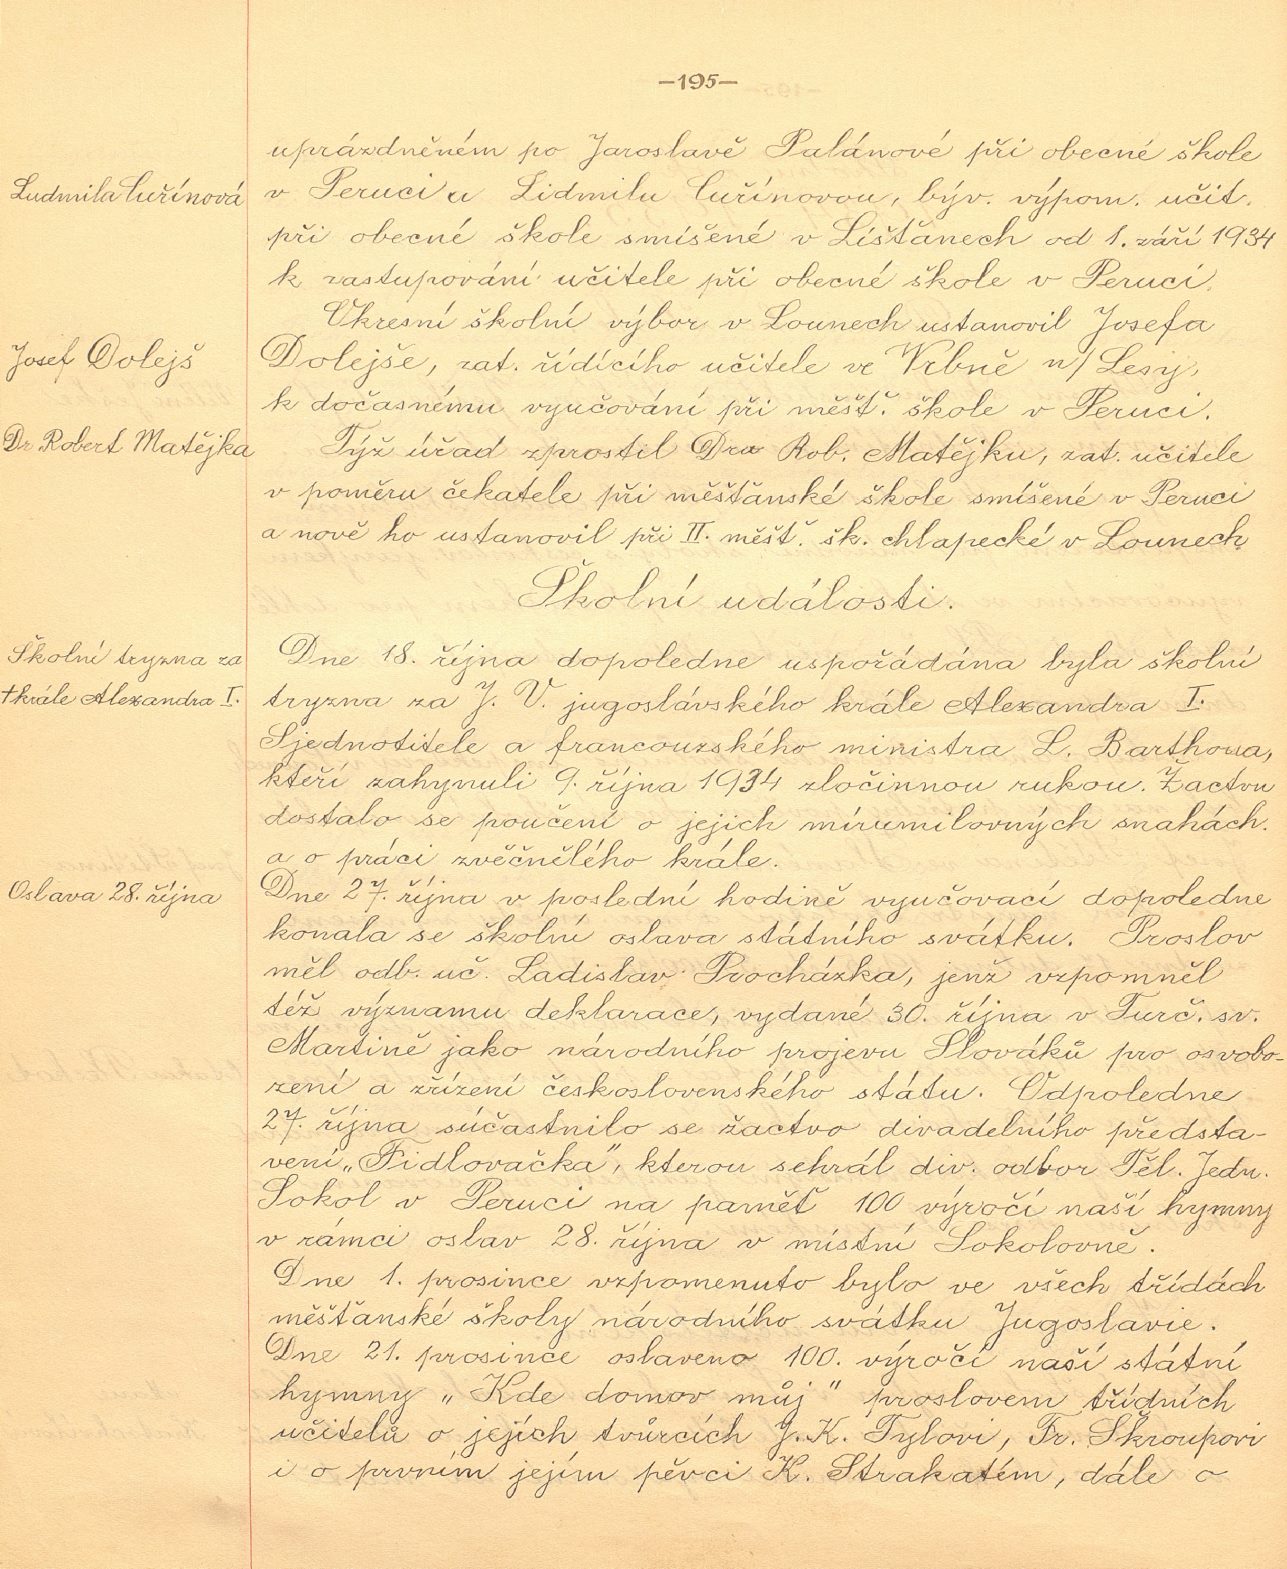 —195—
uprázdněném po Jaroslavě Palánové při obecné škole
Ludmila Cuřínová
v Peruci a Lidmilu Cuřínovou, býv. výpom. učit.
při obecné škole smíšené v Líšťanech od 1. září 1934
k zastupování učitele při obecné škole v Peruci.
Okresní školní výbor v Lounech ustanovil Josefa
Josef Dolejš
Dolejše, zat. řídícího učitele ve Vrbně n/Lesy,
k dočasnému vyučování při měšť. škole v Peruci.
Dr Robert Matějka
Týž úřad zprostil Dra Rob. Matějku, zat. učitele
v poměru čekatele při měšťanské škole smíšené v Peruci
a nově ho ustanovil při II. měšť. šk. chlapecké v Lounech
Školní události.
Školní tryzna za
†krále Alexandra I.
Dne 18. října dopoledne uspořádána byla školní
tryzna za J. V. jugoslávského krále Alexandra I.
Sjednotitele a francouzského ministra L. Barthoua,
kteří zahynuli 9. října 1934 zločinnou rukou. Žactvu
dostalo se poučení o jejich mírumilovných snahách.
a o práci zvěčnělého krále.
Oslava 28. října
Dne 27. října v poslední hodině vyučovací dopoledne
konala se školní oslava státního svátku. Proslov
měl odb. uč. Ladislav Procházka, jenž vzpomněl
též významu deklarace, vydané 30. října v Turč. sv.
Martině jako národního projevu Slováků pro osvobo-
zení a zřízení československého státu. Odpoledne
27. října súčastnilo se žactvo divadelního předsta-
vení „Fidlovačka", kterou sehrál div. odbor Těl. Jedn.
Sokol v Peruci na paměť 100 výročí naší hymny
v rámci oslav 28. října v místní Sokolovně.
Dne 1. prosince vzpomenuto bylo ve všech třídách
měšťanské školy národního svátku Jugoslavie.
Dne 21. prosince oslaveno 100. výročí naší státní
hymny „Kde domov můj" proslovem třídních
učitelů o jejích tvůrcích J. K. Tylovi, Fr. Škroupovi
i o prvním jejím pěvci K. Strakatém, dále o